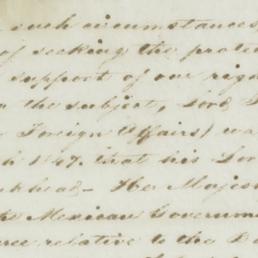 such circumstances,
of seeking the prote
support of our righ
the subject, Lord
Foreign Affairs) wa
h 1847. that his Lor
nkhead - Her Majes
the Mexican Governme
ree relative to the D